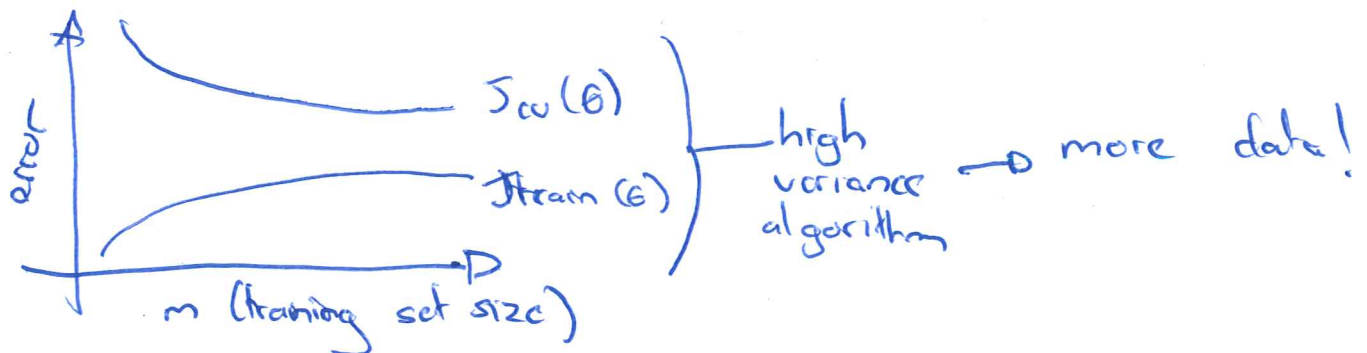 error
J_cv(θ)
Jtrain(θ)
m (training set size)
high
variance
algorithm
→ more data!